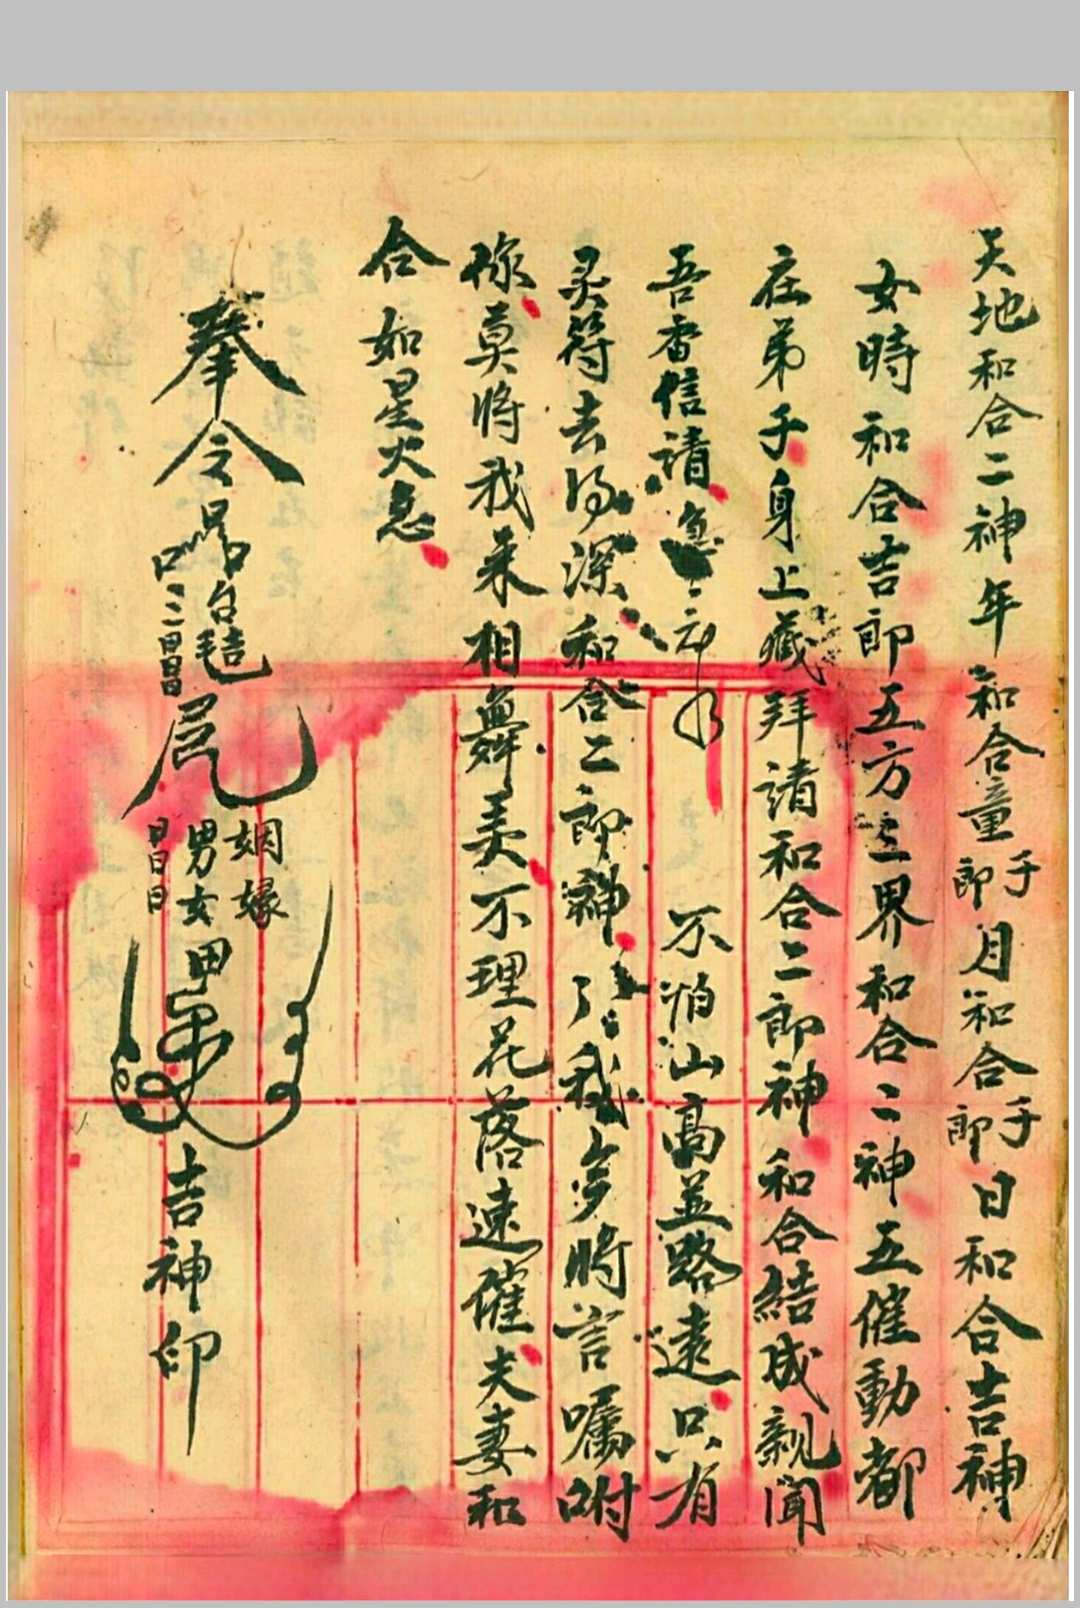 天地和合二神年和合童子郎月和合子郎日和合吉神
女時和合吉郎五方三界和合二神五催動都
在弟子身上藏拜請和合二郎神和合結成親聞
吾香信請急 不怕山高並路遠只有
灵符去得深和合二郎神了我多時言嘱咐
你莫将我来相舞弄不理花落速催夫妻和
合如星火急
奉令 姻緣 男女 吉神印